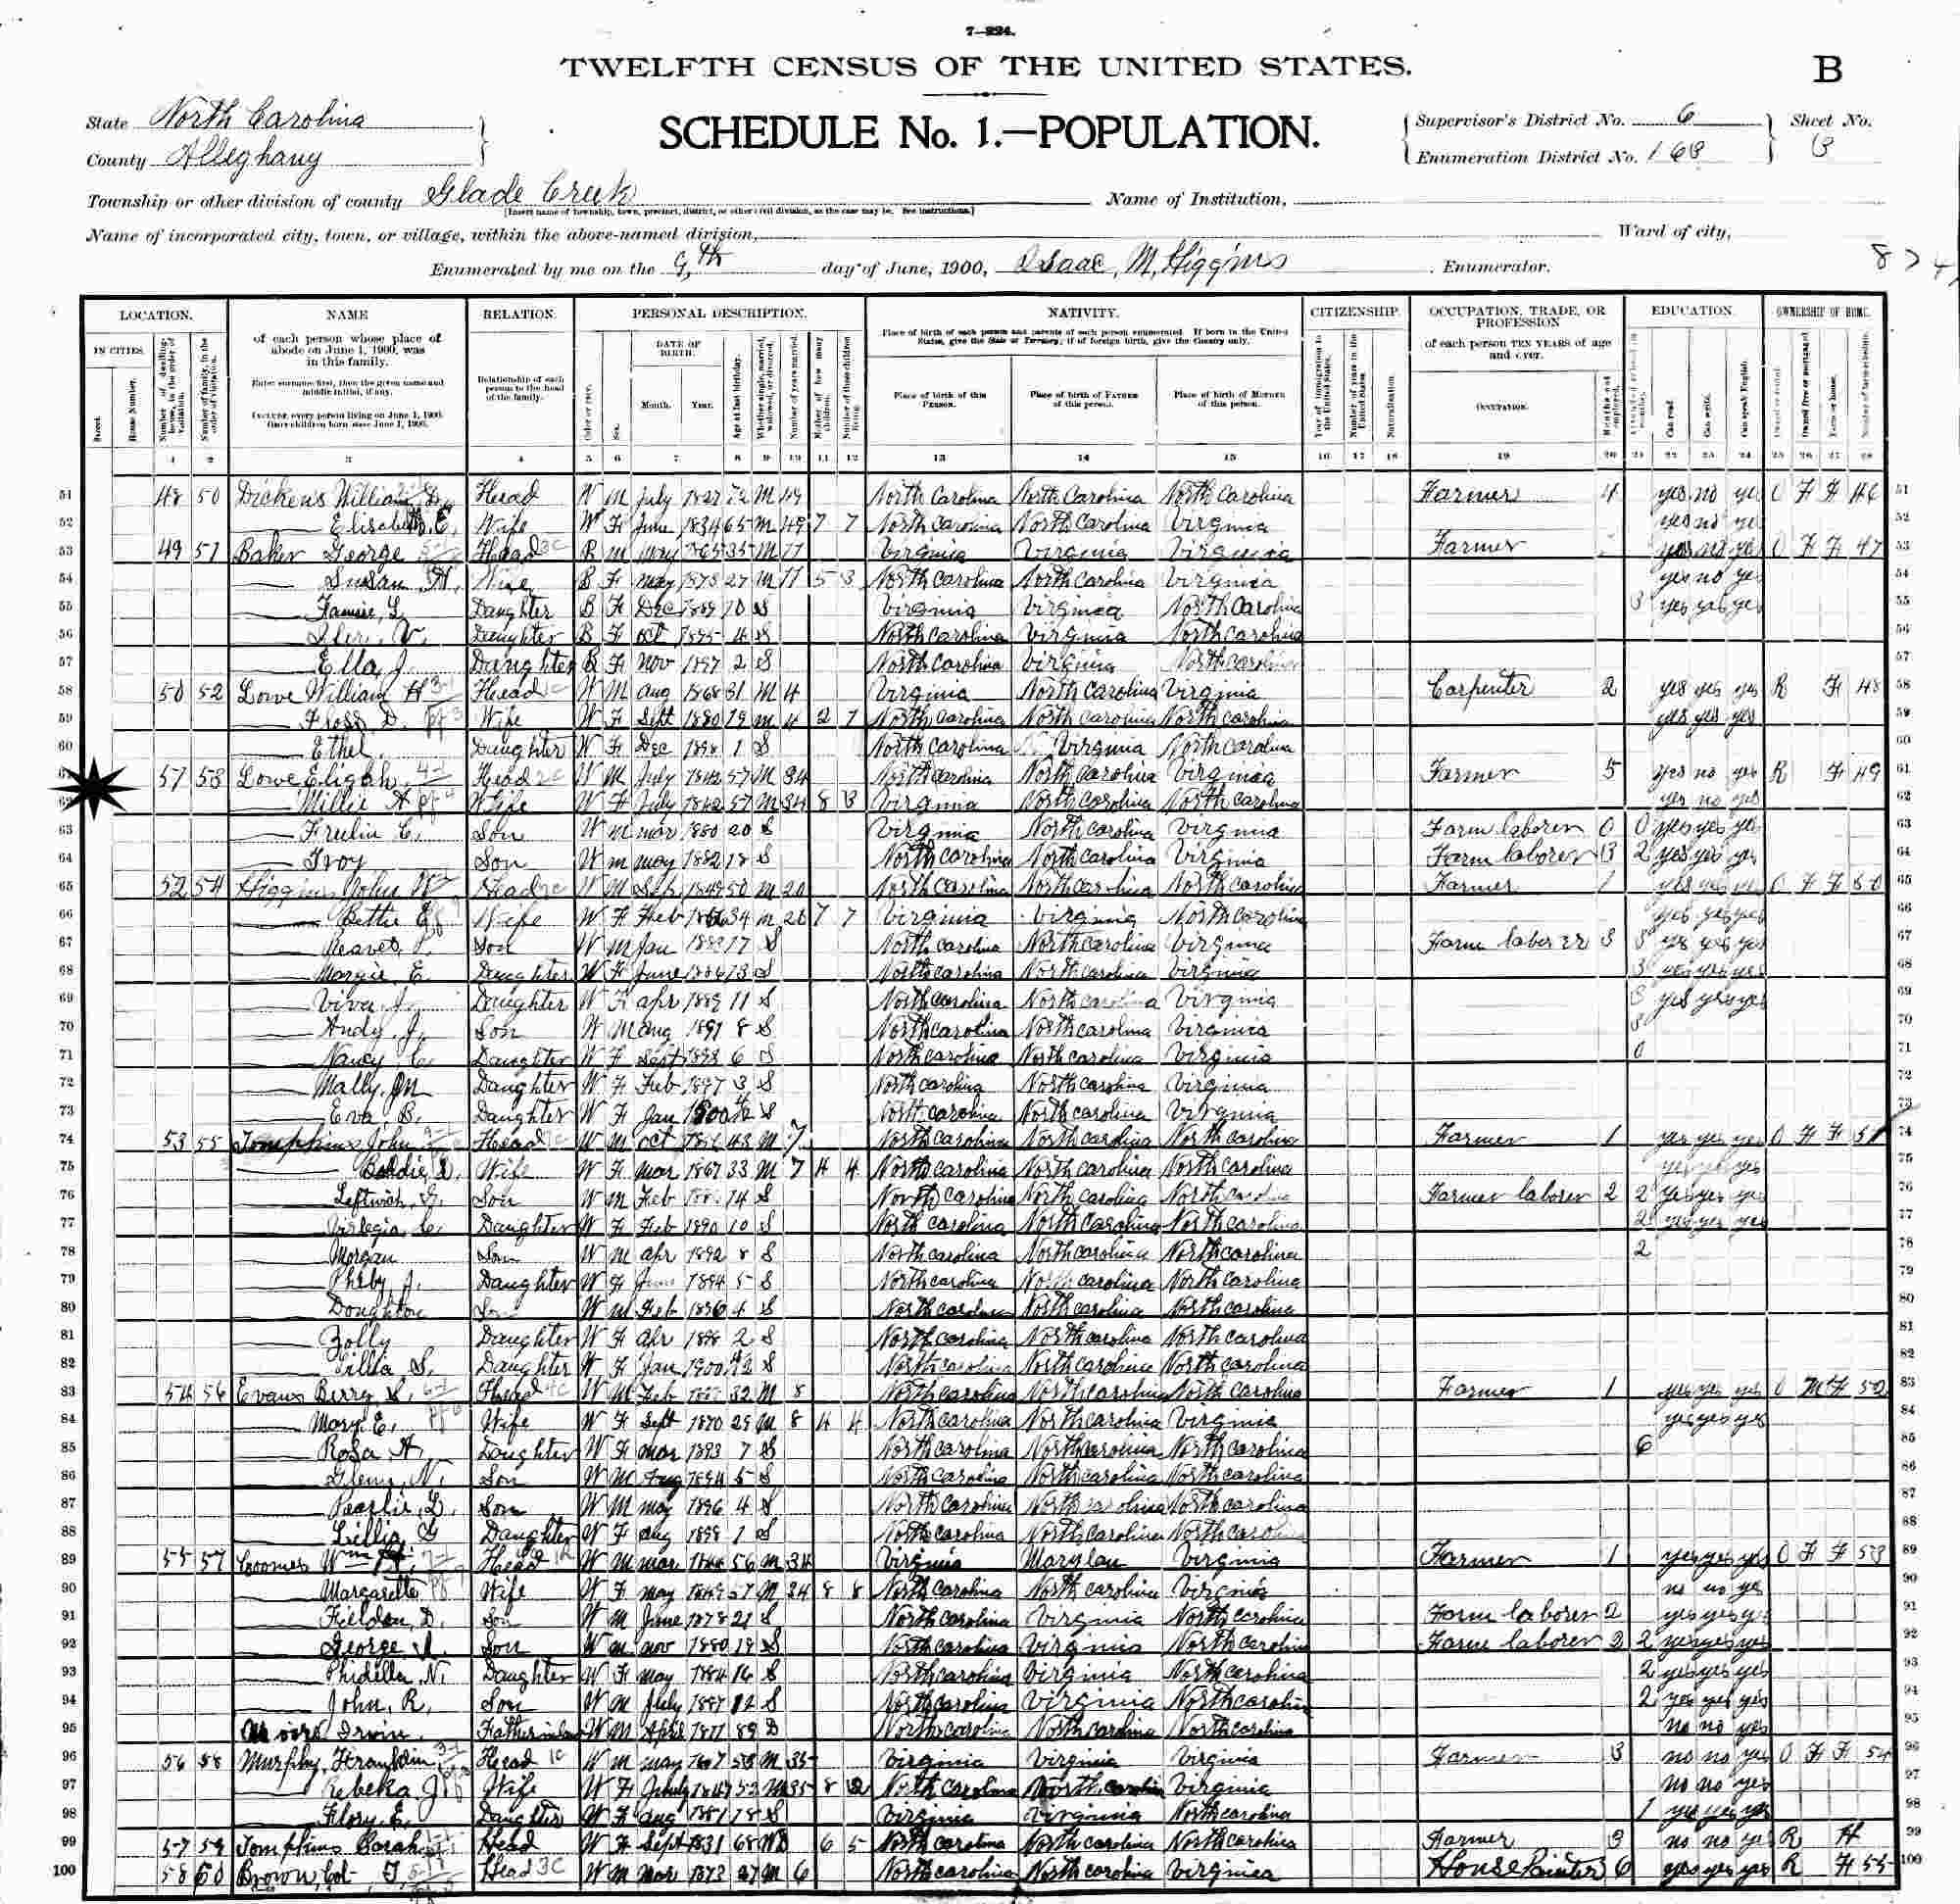 7-224.
TWELFTH CENSUS OF THE UNITED STATES.
B
State North Carolina
County Alleghany
SCHEDULE No. 1.—POPULATION.
Supervisor's District No. 6
Enumeration District No. 168
Sheet No.
Township or other division of county Glade Creek
[Insert name of township, town, precinct, district, or other civil division, as the case may be. See instructions.]
Name of Institution,
Name of incorporated city, town, or village, within the above-named division,
Ward of city,
Enumerated by me on the 9th day of June, 1900, Isaac, M, Higgins, Enumerator.
LOCATION. NAME RELATION. PERSONAL DESCRIPTION. NATIVITY. CITIZENSHIP. OCCUPATION, TRADE, OR PROFESSION EDUCATION. OWNERSHIP OF HOME.
IN CITIES. of each person whose place of abode on June 1, 1900, was in this family.
Enter surname first, then the given name and middle initial, if any.
INCLUDE every person living on June 1, 1900. OMIT children born since June 1, 1900.
Relationship of each person to the head of the family.
DATE OF BIRTH. Month. Year.
Place of birth of each person and parents of each person enumerated. If born in the United States, give the State or Territory; if of foreign birth, give the Country only.
Place of birth of this PERSON. Place of birth of FATHER of this person. Place of birth of MOTHER of this person.
of each person TEN YEARS of age and over.
OCCUPATION.
1 2 3 4 5 6 7 8 9 10 11 12 13 14 15 16 17 18 19 20 21 22 23 24 25 26 27 28
51 48 50 Dickens William Head W M July 1827 72 M 49 North Carolina North Carolina North Carolina Farmer 4 yes no yes O F F 46 51
52 Elisabeth, E, Wife W F June 1834 65 M 49 7 7 North Carolina North Carolina Virginia yes no yes 52
53 49 51 Baker George Head B M May 1865 35 M 11 Virginia Virginia Virginia Farmer yes no yes O F F 47 53
54 Susan, Wife B F May 1873 27 M 11 5 3 North Carolina North Carolina Virginia yes no yes 54
55 Daughter B F Dec 1889 10 S Virginia Virginia North Carolina 3 yes yes yes 55
56 Daughter B F Oct 1895 4 S North Carolina Virginia North Carolina 56
57 Ella, J. Daughter B F Nov 1897 2 S North Carolina Virginia North Carolina 57
58 50 52 Lowe William H Head W M Aug 1868 31 M 4 Virginia North Carolina Virginia Carpenter 2 yes yes yes R F 48 58
59 D. Wife W F Sept 1880 19 M 4 2 1 North Carolina North Carolina North Carolina yes yes yes 59
60 Ethel Daughter W F Dec 1898 1 S North Carolina Virginia North Carolina 60
61 51 53 Lowe Eligah, Head W M July 1842 57 M 34 North Carolina North Carolina Virginia Farmer 5 yes no yes R F 49 61
62 Millie A Wife W F July 1842 57 M 34 8 Virginia North Carolina North Carolina yes no yes 62
63 Son W M Mar 1880 20 S Virginia North Carolina Virginia Farm laborer 0 0 yes yes yes 63
64 Troy Son W M May 1882 18 S North Carolina North Carolina Virginia Farm laborer 3 2 yes yes yes 64
65 52 54 Higgins John W Head W M Sep 1849 50 M 20 North Carolina North Carolina North Carolina Farmer 1 yes yes yes O F F 50 65
66 Bettie E Wife W F Feb 1866 34 M 20 7 7 Virginia Virginia North Carolina yes yes yes 66
67 Son W M Jan 17 S North Carolina North Carolina Virginia Farm laborer 3 yes yes yes 67
68 Margie E. Daughter W F June 1886 13 S North Carolina North Carolina Virginia 3 yes yes yes 68
69 Viva, J. Daughter W F Apr 1889 11 S North Carolina North Carolina Virginia yes yes yes 69
70 Andy, J, Son W M Aug 1891 8 S North Carolina North Carolina Virginia 70
71 Nancy C. Daughter W F Sept 1893 6 S North Carolina North Carolina Virginia 0 71
72 Mally, M Daughter W F Feb 1897 3 S North Carolina North Carolina Virginia 72
73 Eva B. Daughter W F Jan 1900 S North Carolina North Carolina Virginia 73
74 53 55 Tompkins John Head W M Oct 43 M 7 North Carolina North Carolina North Carolina Farmer 1 yes yes yes O F F 51 74
75 Wife W F Mar 1867 33 M 7 4 4 North Carolina North Carolina North Carolina yes yes yes 75
76 Leftwich, Son W M Feb 14 S North Carolina North Carolina North Carolina Farmer laborer 2 2 yes yes yes 76
77 Daughter W F Feb 1890 10 S North Carolina North Carolina North Carolina 2 yes yes yes 77
78 Morgan Son W M Apr 1892 8 S North Carolina North Carolina North Carolina 2 78
79 Pheby J. Daughter W F June 1894 5 S North Carolina North Carolina North Carolina 79
80 Doughton Son W M Feb 1896 4 S North Carolina North Carolina North Carolina 80
81 Zolly Daughter W F Apr 1898 2 S North Carolina North Carolina North Carolina 81
82 S. Daughter W F Jan 1900 S North Carolina North Carolina North Carolina 82
83 54 56 Evans Berry Head W M Feb 32 M 8 North Carolina North Carolina North Carolina Farmer 1 yes yes yes O M F 52 83
84 Mary E, Wife W F Sept 1870 29 M 8 4 4 North Carolina North Carolina Virginia yes yes yes 84
85 Rosa A Daughter W F Mar 1893 7 S North Carolina North Carolina North Carolina 6 85
86 Glenn, N. Son W M Aug 1894 5 S North Carolina North Carolina North Carolina 86
87 Son W M May 1896 4 S North Carolina North Carolina North Carolina 87
88 Lillia, Daughter W F Aug 1898 1 S North Carolina North Carolina North Carolina 88
89 55 57 Coomes Wm Head W M Mar 1844 56 M 34 Virginia Virginia Farmer 1 yes yes yes O F F 53 89
90 Margarette Wife W F May 1849 M 34 8 8 North Carolina North Carolina Virginia no no yes 90
91 Fielden, D. Son W M June 1878 21 S North Carolina Virginia North Carolina Farm laborer 2 yes yes yes 91
92 George Son W M Nov 1880 19 S North Carolina Virginia North Carolina Farm laborer 2 2 yes yes yes 92
93 Phidilla, N. Daughter W F May 1884 16 S North Carolina Virginia North Carolina 2 yes yes yes 93
94 John, R, Son W M July 1887 12 S North Carolina Virginia North Carolina 2 yes yes yes 94
95 Irvin Father in law W M April 1811 89 North Carolina North Carolina North Carolina no no yes 95
96 56 58 Murphy, Franklin Head W M May 1847 53 M 35 Virginia Virginia Virginia Farmer 3 no no yes O F F 54 96
97 Rebeka J Wife W F 1847 52 M 35 8 North Carolina North Carolina Virginia no no yes 97
98 Flory E. Daughter W F Aug 1881 18 S Virginia Virginia North Carolina 1 yes yes yes 98
99 57 59 Tompkins Sarah Head W F Sept 1831 68 6 5 North Carolina North Carolina North Carolina Farmer 3 no no yes R H 99
100 58 60 Brown, Head W M Mar 1873 27 M 6 North Carolina North Carolina Virginia House Painter 6 yes yes yes R F 55 100